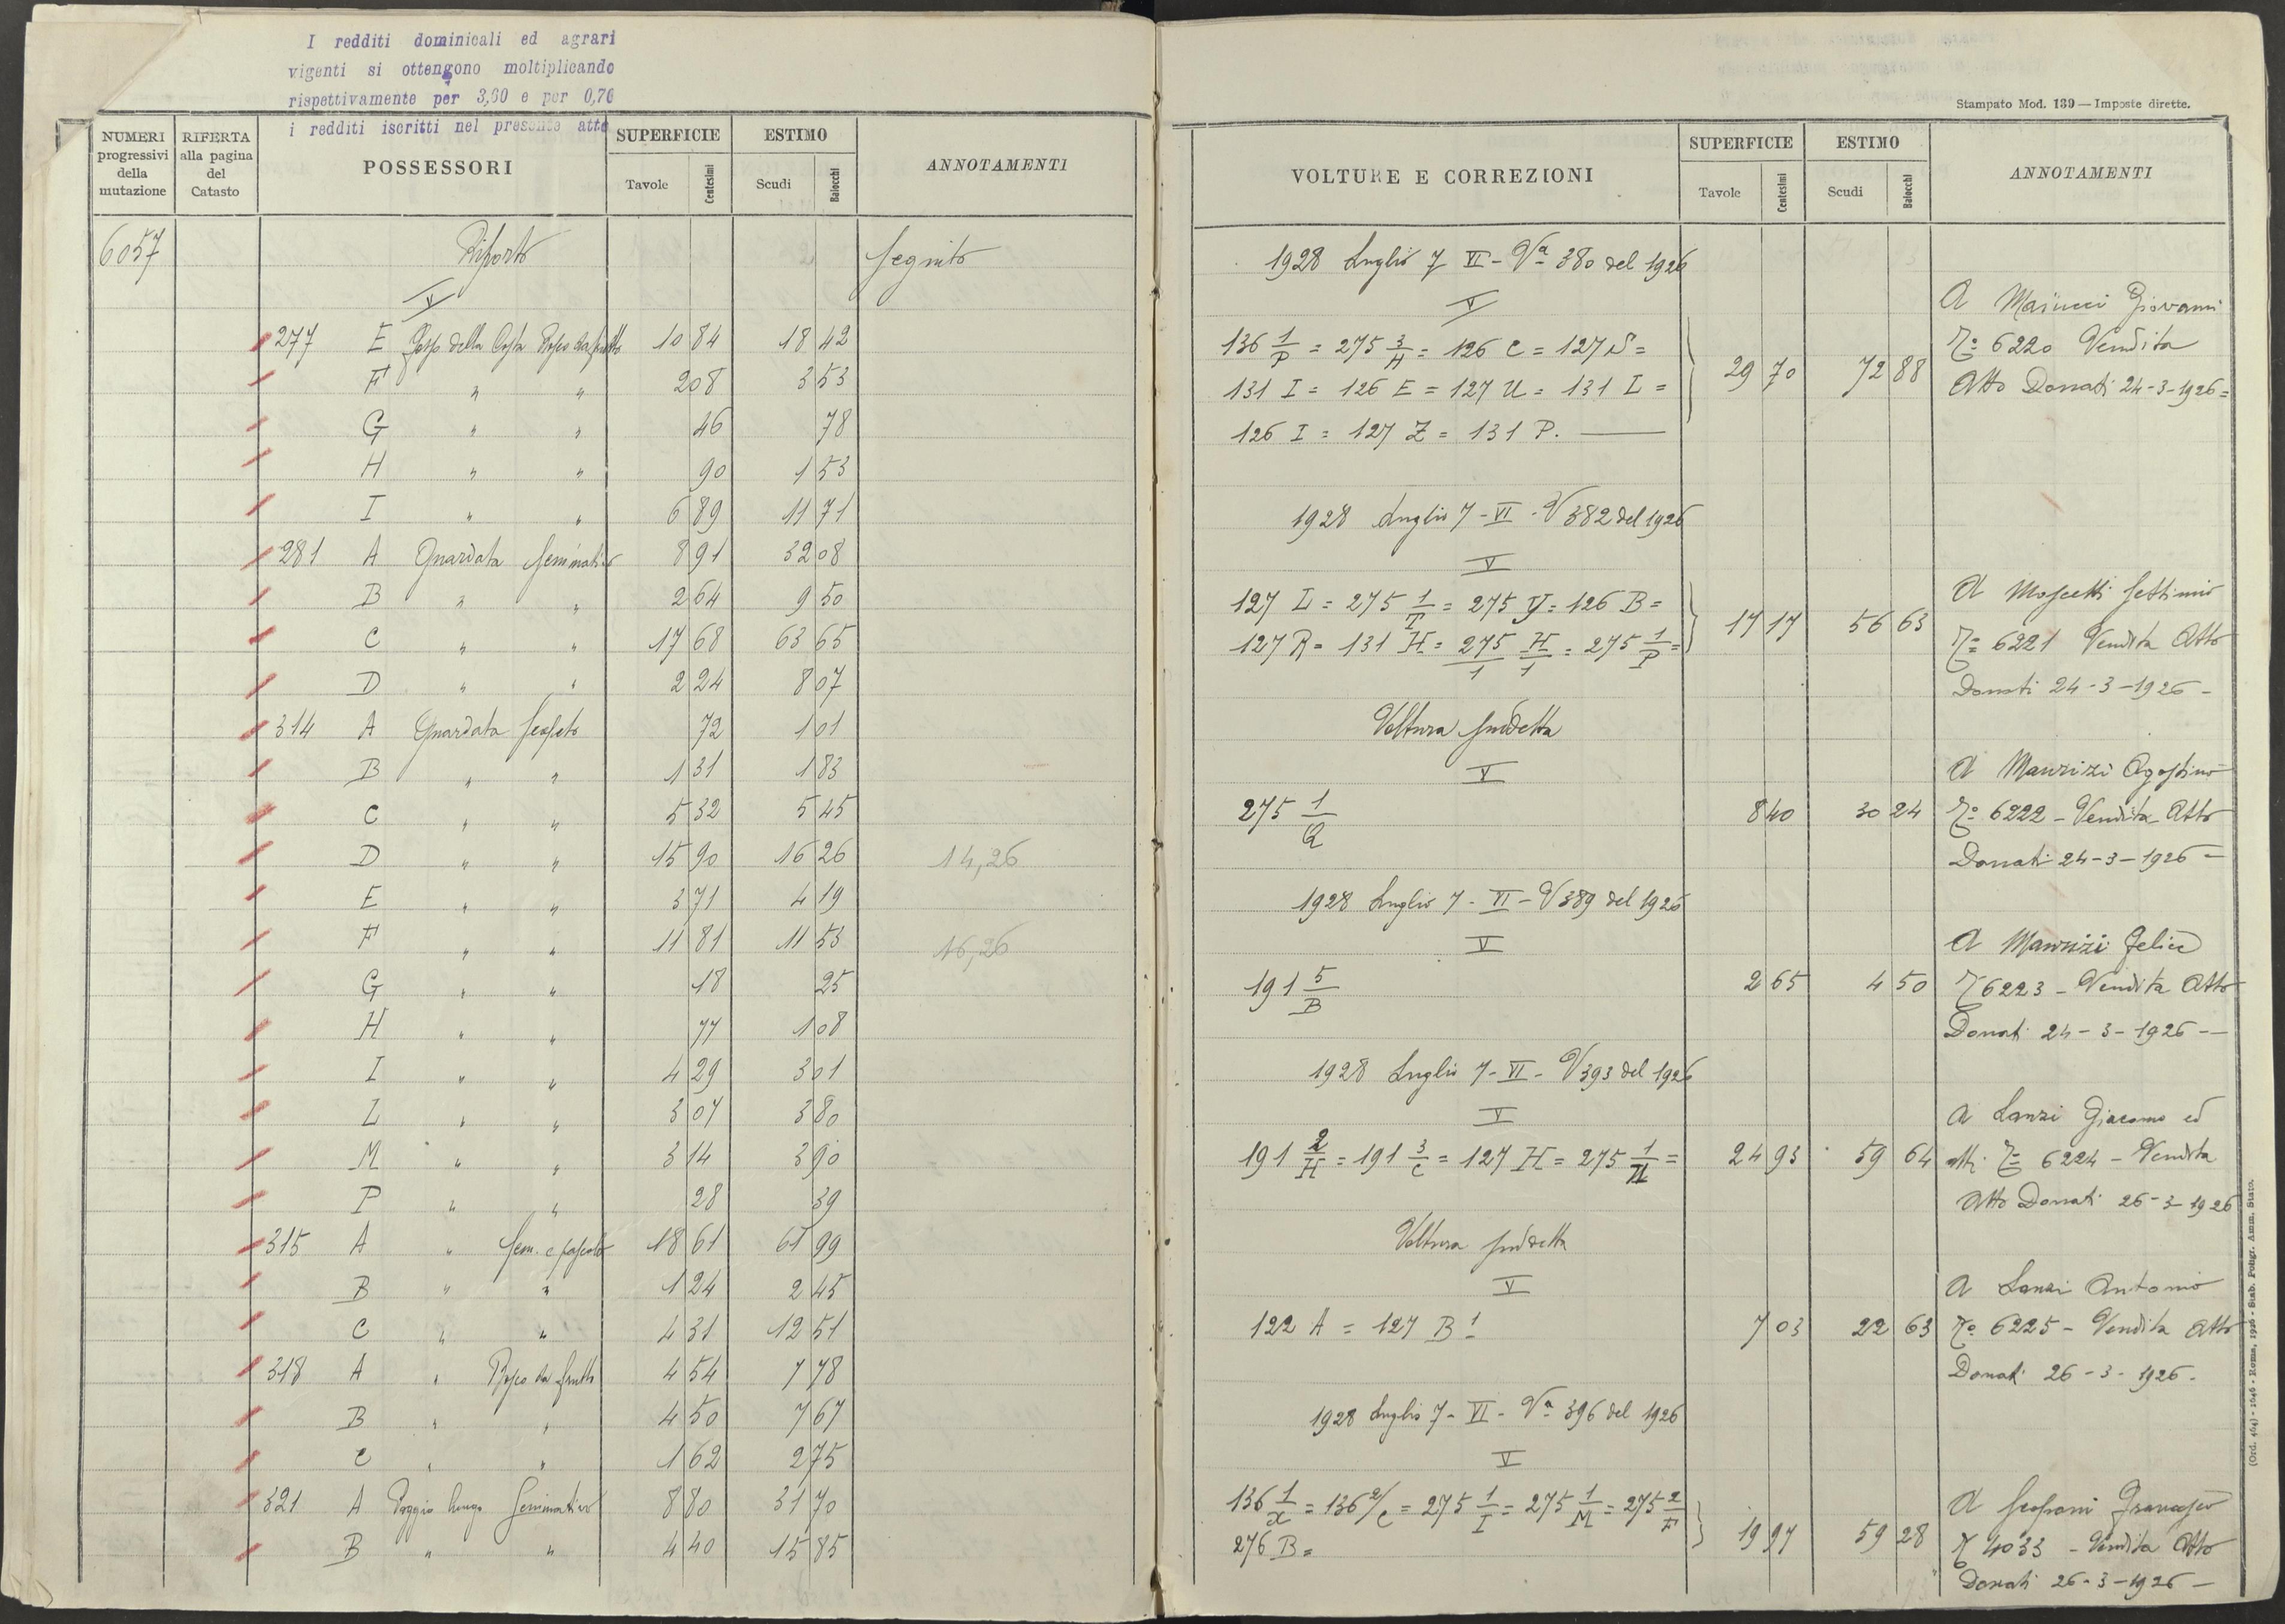 I redditi dominicali ed agrari
vigenti si ottengono moltiplicando
rispettivamente per 3,60 e per 0,76
i redditi iscritti nel presente atto
NUMERI progressivi della mutazione
RIFERTA alla pagina del Catasto
POSSESSORI
SUPERFICIE
Tavole Centesimi
ESTIMO
Scudi Baiocchi
ANNOTAMENTI
6057 Riporto Seguito
V
277 E della Costa Bosco da frutto 10 84 18 42
F " " 2 08 3 53
G " " 46 78
H " " 90 1 53
I " " 6 89 11 71
281 A Quardata Seminativo 8 91 32 08
B " " 2 64 9 50
C " " 17 68 63 65
D " " 2 24 8 07
314 A Quardata 72 1 01
B " " 1 31 1 83
C " " 5 32 5 45
D " " 15 90 16 26 14,26
E " " 3 71 4 19
F " " 11 81 11 53 16,26
G " " 18 25
H " " 77 1 08
I " " 4 29 3 01
L " " 3 07 3 80
M " " 3 14 3 90
P " " 28 39
315 A " Sem. e pascolo 18 61 61 99
B " " 1 24 2 45
C " " 4 31 12 51
318 A " Bosco da frutto 4 54 7 78
B " " 4 50 7 67
C " " 1 62 2 75
321 A Poggio lungo Seminativo 8 80 31 70
B " " 4 40 15 85
Stampato Mod. 139 — Imposte dirette.
VOLTURE E CORREZIONI
SUPERFICIE
Tavole Centesimi
ESTIMO
Scudi Baiocchi
ANNOTAMENTI
1928 Luglio 7 VI - Va 380 del 1926
V
A Maiucci Giovanni
136 1/P = 275 3/H = 126 C = 127 S =
No 6220 Vendita
131 I = 126 E = 127 U = 131 L = 29 70 72 88
Atto Donati 24-3-1926 =
126 I = 127 Z = 131 P.
1928 Luglio 7 - VI - V 382 del 1926
V
A Moscetti Settimio
127 L = 275 1/T = 275 Y = 126 B =
17 17 56 63
127 R = 131 H = 275/1 H/1 = 275 1/P =
No 6221 Vendita Atto
Donati 24-3-1926 -
Voltura suddetta
V
A Maurizi Agostino
275 1/Q 8 40 30 24 No 6222 - Vendita Atto
Donati 24-3-1926 -
1928 Luglio 7 - VI - V 389 del 1926
V
A Maurizi Felice
191 5/B 2 65 4 50 No 6223 - Vendita Atto
Donati 24-3-1926 -
1928 Luglio 7 - VI - V 393 del 1926
V
A Lanzi Giacomo ed
191 2/H = 191 3/C = 127 H = 275 1/N = 24 93 59 64 altri No 6224 - Vendita
Atto Donati 26-3-1926
Voltura suddetta
V
A Lanzi Antonio
122 A = 127 B 1 7 03 22 63 No 6225 - Vendita Atto
Donati 26-3-1926 -
1928 Luglio 7 - VI - Va 396 del 1926
V
136 1/X = 136 2/C = 275 1/I = 275 1/M = 275 2/F
A Francesco
276 B = 19 97 59 28 No 4033 - Vendita Atto
Donati 26-3-1926 -
(Ord. 464) - 1646 - Roma, 1926 - Stab. Poligr. Amm. Stato.